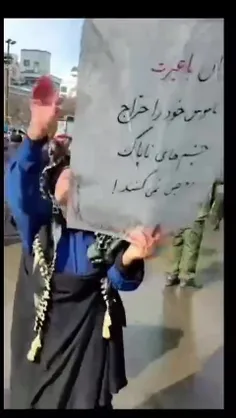 ان باغیرت
ناموس خود را حراج
چشم‌های ناپاک
نمی کنند!